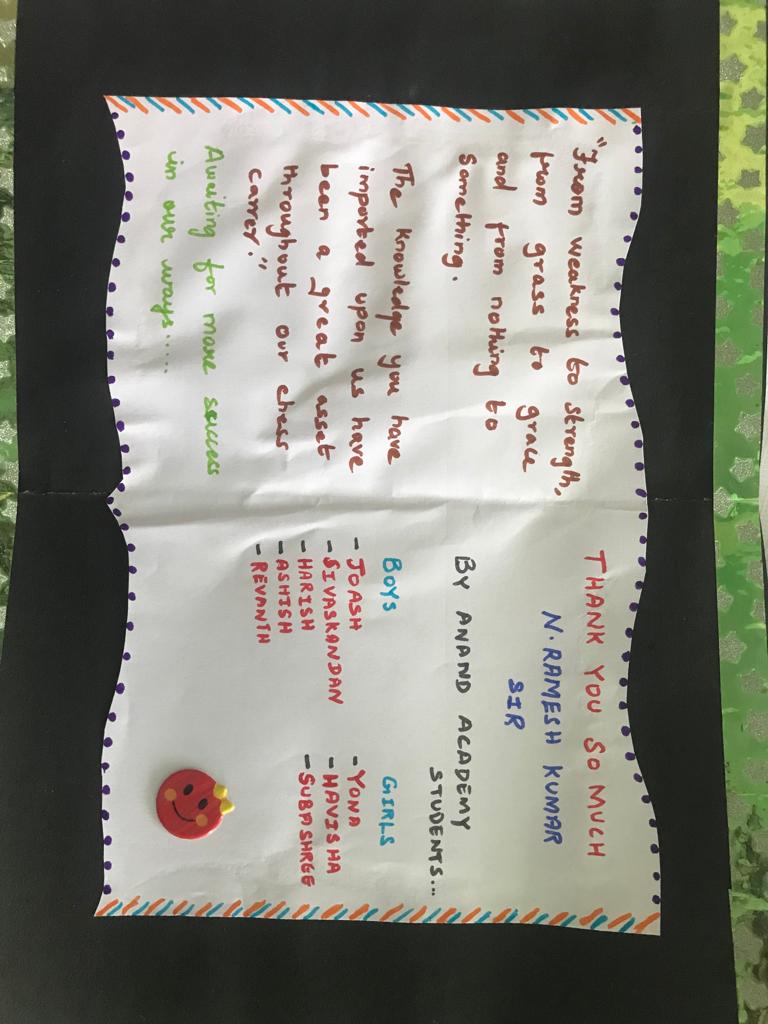 "From weakness to strength,
from grass to grace
and from nothing to
something.
The knowledge you have
imported upon us have
been a great asset
throughout our chess
carrer."
Awaiting for more success
in our ways.....
THANK YOU SO MUCH
N. RAMESH KUMAR
SIR
BY ANAND ACADEMY
STUDENTS...
BOYS
- JOASH
- SIVASKANDAN
- HARISH
- ASHISH
- REVANTH
GIRLS
- YONA
- HAVISHA
- SUBASHREE